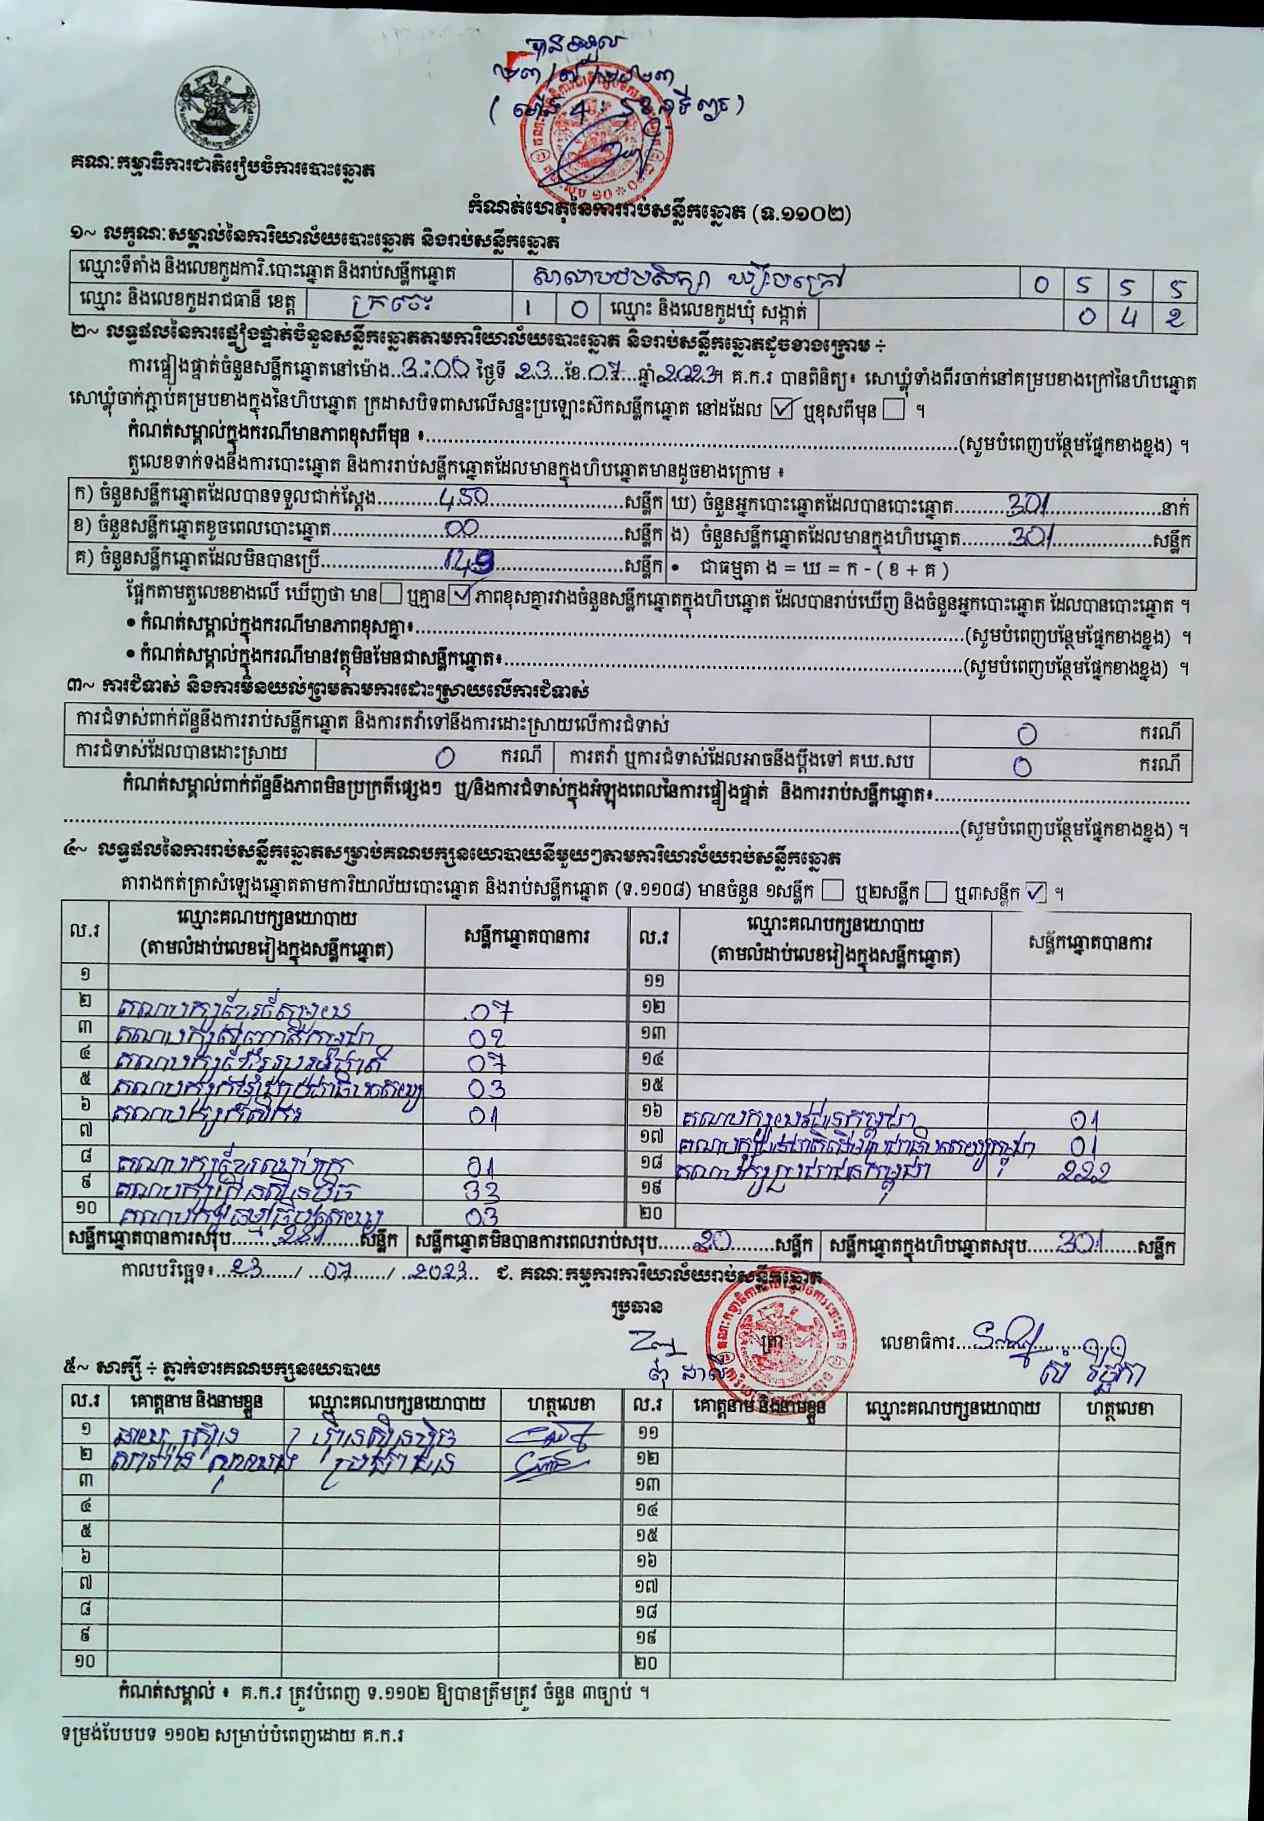 បានទទួល
២៣/៧/២០២៣
គណៈកម្មាធិការជាតិរៀបចំការបោះឆ្នោត
កំណត់ហេតុនៃការរាប់សន្លឹកឆ្នោត (ទ.១១០២)
១~ លក្ខណៈសម្គាល់នៃការិយាល័យបោះឆ្នោត និងរាប់សន្លឹកឆ្នោត
ឈ្មោះទីតាំង និងលេខកូដការិ.បោះឆ្នោត និងរាប់សន្លឹកឆ្នោត សាលាបឋមសិក្សា 0 5 5 5
ឈ្មោះ និងលេខកូដរាជធានី ខេត្ត ក្រចេះ 1 0 ឈ្មោះ និងលេខកូដឃុំ សង្កាត់ 0 4 2
២~ លទ្ធផលនៃការផ្ទៀងផ្ទាត់ចំនួនសន្លឹកឆ្នោតតាមការិយាល័យបោះឆ្នោត និងរាប់សន្លឹកឆ្នោតដូចខាងក្រោម ÷
ការផ្ទៀងផ្ទាត់ចំនួនសន្លឹកឆ្នោតនៅម៉ោង..3:00 ថ្ងៃទី 23..ខែ.07...ឆ្នាំ.2023។ គ.ក.រ បានពិនិត្យ៖ សោឃ្លុំទាំងពីរចាក់នៅគម្របខាងក្រៅនៃហិបឆ្នោត
សោឃ្លុំចាក់ភ្ជាប់គម្របខាងក្នុងនៃហិបឆ្នោត ក្រដាសបិទពាសលើសន្ទះប្រឡោះស៊កសន្លឹកឆ្នោត នៅដដែល ☑ ឬខុសពីមុន ☐ ។
កំណត់សម្គាល់ក្នុងករណីមានភាពខុសពីមុន ៖..........(សូមបំពេញបន្ថែមផ្នែកខាងខ្នង) ។
តួលេខទាក់ទងនឹងការបោះឆ្នោត និងការរាប់សន្លឹកឆ្នោតដែលមានក្នុងហិបឆ្នោតមានដូចខាងក្រោម ៖
ក) ចំនួនសន្លឹកឆ្នោតដែលបានទទួលជាក់ស្តែង..........450..........សន្លឹក ឃ) ចំនួនអ្នកបោះឆ្នោតដែលបានបោះឆ្នោត..........301..........នាក់
ខ) ចំនួនសន្លឹកឆ្នោតខូចពេលបោះឆ្នោត..........00..........សន្លឹក ង) ចំនួនសន្លឹកឆ្នោតដែលមានក្នុងហិបឆ្នោត..........301..........សន្លឹក
គ) ចំនួនសន្លឹកឆ្នោតដែលមិនបានប្រើ..........149..........សន្លឹក • ជាធម្មតា ង = ឃ = ក - ( ខ + គ )
ផ្អែកតាមតួលេខខាងលើ ឃើញថា មាន ☐ ឬគ្មាន ☑ ភាពខុសគ្នារវាងចំនួនសន្លឹកឆ្នោតក្នុងហិបឆ្នោត ដែលបានរាប់ឃើញ និងចំនួនអ្នកបោះឆ្នោត ដែលបានបោះឆ្នោត ។
• កំណត់សម្គាល់ក្នុងករណីមានភាពខុសគ្នា៖..........(សូមបំពេញបន្ថែមផ្នែកខាងខ្នង) ។
• កំណត់សម្គាល់ក្នុងករណីមានវត្ថុមិនមែនជាសន្លឹកឆ្នោត៖..........(សូមបំពេញបន្ថែមផ្នែកខាងខ្នង) ។
៣~ ការជំទាស់ និងការមិនយល់ព្រមតាមការដោះស្រាយលើការជំទាស់
ការជំទាស់ពាក់ព័ន្ធនឹងការរាប់សន្លឹកឆ្នោត និងការតវ៉ាទៅនឹងការដោះស្រាយលើការជំទាស់ 0 ករណី
ការជំទាស់ដែលបានដោះស្រាយ 0 ករណី ការតវ៉ា ឬការជំទាស់ដែលអាចនឹងប្តឹងទៅ គឃ.សប 0 ករណី
កំណត់សម្គាល់ពាក់ព័ន្ធនឹងភាពមិនប្រក្រតីផ្សេងៗ ឬ/និងការជំទាស់ក្នុងអំឡុងពេលនៃការផ្ទៀងផ្ទាត់ និងការរាប់សន្លឹកឆ្នោត៖..........
..........(សូមបំពេញបន្ថែមផ្នែកខាងខ្នង) ។
៤~ លទ្ធផលនៃការរាប់សន្លឹកឆ្នោតសម្រាប់គណបក្សនយោបាយនីមួយៗតាមការិយាល័យរាប់សន្លឹកឆ្នោត
តារាងកត់ត្រាសំឡេងឆ្នោតតាមការិយាល័យបោះឆ្នោត និងរាប់សន្លឹកឆ្នោត (ទ.១១០៨) មានចំនួន ១សន្លឹក ☐ ឬ២សន្លឹក ☐ ឬ៣សន្លឹក ☑ ។
ល.រ ឈ្មោះគណបក្សនយោបាយ សន្លឹកឆ្នោតបានការ ល.រ ឈ្មោះគណបក្សនយោបាយ សន្លឹកឆ្នោតបានការ
(តាមលំដាប់លេខរៀងក្នុងសន្លឹកឆ្នោត) (តាមលំដាប់លេខរៀងក្នុងសន្លឹកឆ្នោត)
១ ១១
២ គណបក្ស 07 ១២
៣ គណបក្ស 02 ១៣
៤ គណបក្ស 07 ១៤
៥ គណបក្ស 03 ១៥
៦ គណបក្ស 01 ១៦ គណបក្សយុវជនកម្ពុជា 01
៧ ១៧ គណបក្ស 01
៨ គណបក្ស 01 ១៨ គណបក្សប្រជាជនកម្ពុជា 222
៩ គណបក្សហ៊្វុនស៊ិនប៉ិច 33 ១៩
១០ គណបក្សធម្មាធិបតេយ្យ 03 ២០
សន្លឹកឆ្នោតបានការសរុប.......281.......សន្លឹក សន្លឹកឆ្នោតមិនបានការពេលរាប់សរុប.......20.......សន្លឹក សន្លឹកឆ្នោតក្នុងហិបឆ្នោតសរុប.......301.......សន្លឹក
កាលបរិច្ឆេទ៖...23....../...07....../...2023.. ជ. គណៈកម្មការការិយាល័យរាប់សន្លឹកឆ្នោត
ប្រធាន
ត្រា លេខាធិការ..........
៥~ សាក្សី ÷ ភ្នាក់ងារគណបក្សនយោបាយ
ល.រ គោត្តនាម និងនាមខ្លួន ឈ្មោះគណបក្សនយោបាយ ហត្ថលេខា ល.រ គោត្តនាម និងនាមខ្លួន ឈ្មោះគណបក្សនយោបាយ ហត្ថលេខា
១ ហ៊្វុនស៊ិនប៉ិច ១១
២ ប្រជាជន ១២
៣ ១៣
៤ ១៤
៥ ១៥
៦ ១៦
៧ ១៧
៨ ១៨
៩ ១៩
១០ ២០
កំណត់សម្គាល់ ៖ គ.ក.រ ត្រូវបំពេញ ទ.១១០២ ឱ្យបានត្រឹមត្រូវ ចំនួន ៣ច្បាប់ ។
ទម្រង់បែបបទ ១១០២ សម្រាប់បំពេញដោយ គ.ក.រ